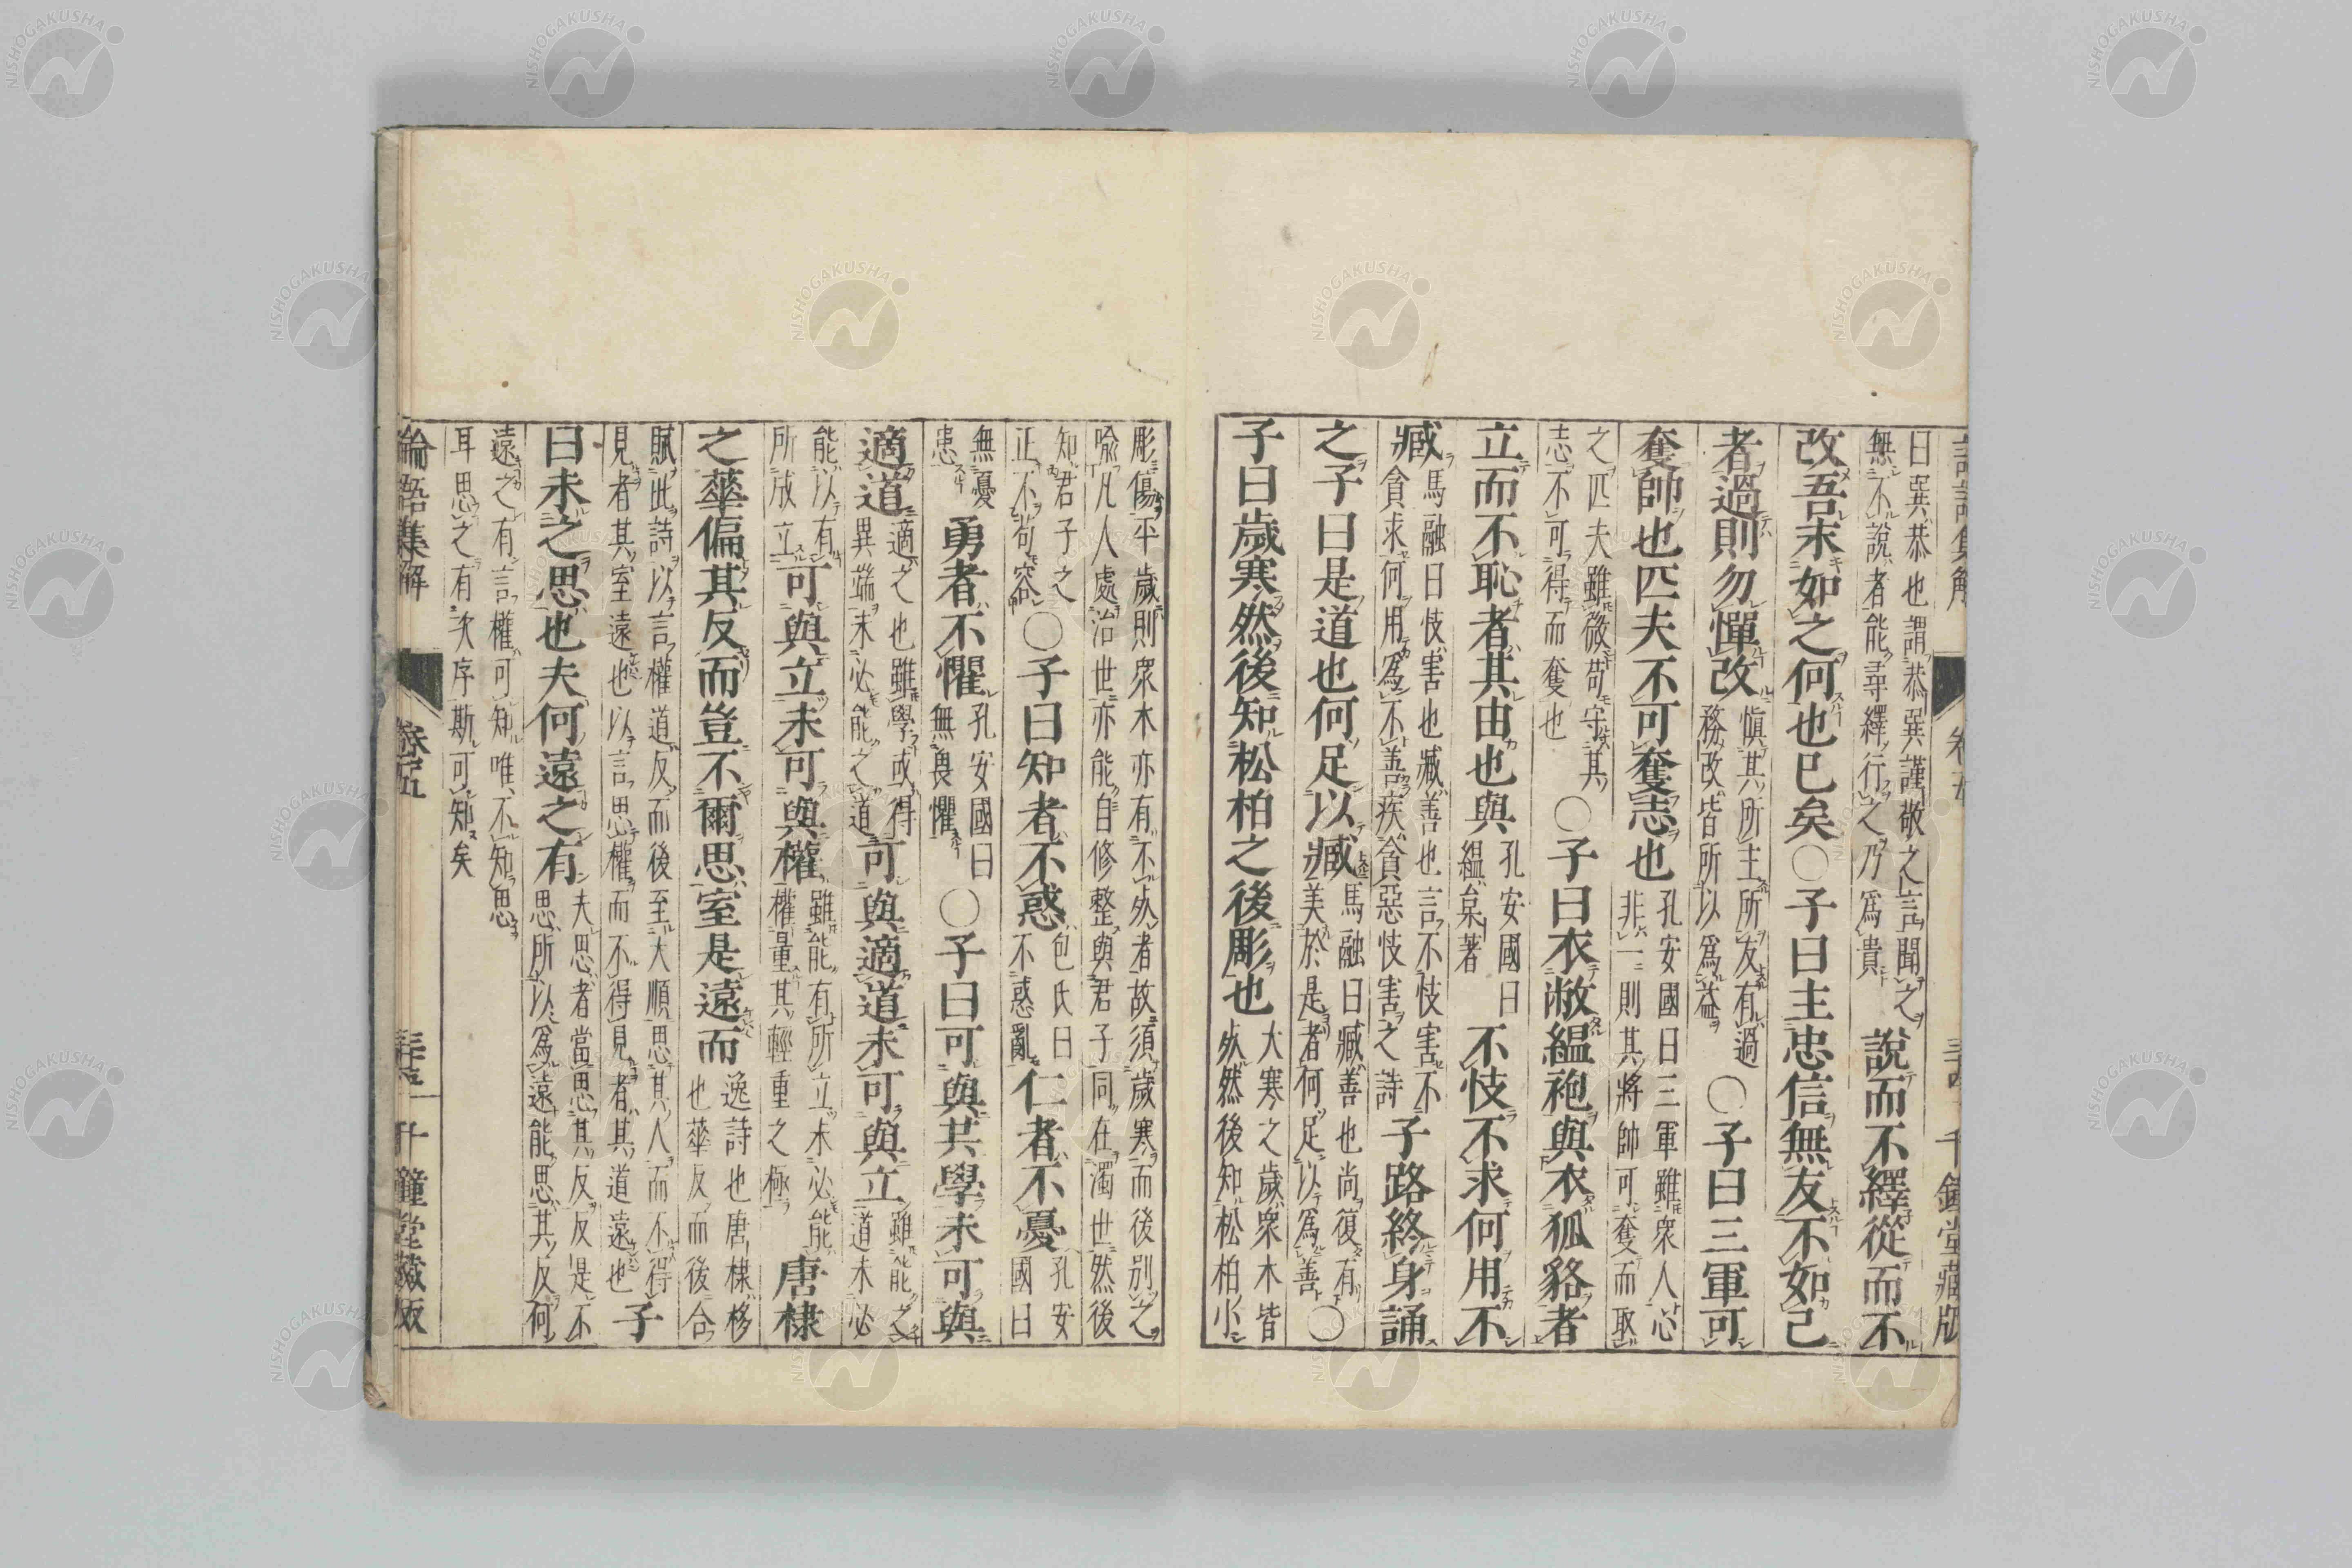 曰巽恭也謂恭巽謹敬之言聞之
無不說者能尋繹行之乃爲貴
說而不繹從而不
改吾末如之何也已矣○子曰主忠信無友不如己
者過則勿憚改
愼其所主所友有過
務改皆所以爲益
○子曰三軍可
奪帥也匹夫不可奪志也
孔安國曰三軍雖衆人心
非一則其將帥可奪而取
之匹夫雖微苟守其
志不可得而奪也
○子曰衣敝縕袍與衣狐貉者
立而不恥者其由也與
孔安國曰
縕枲著
不忮不求何用不
臧
馬融曰忮害也臧善也言不忮害不
貪求何用爲不善疾貪惡忮害之詩
子路終身誦
之子曰是道也何足以臧
馬融曰臧善也尚復有
美於是者何足以爲善
○
子曰歲寒然後知松柏之後彫也
大寒之歲衆木皆
死然後知松柏小
彫傷平歲則衆木亦有不死者故須歲寒而後別之
喩凡人處治世亦能自修整與君子同在濁世然後
知君子之
正不苟容
○子曰知者不惑
包氏曰
不惑亂
仁者不憂
孔安
國曰
無憂
患
勇者不懼
孔安國曰
無畏懼
○子曰可與共學未可與
適道
適之也雖學或得
異端未必能之道
可與適道未可與立
雖能之
道未必
能以有
所成立
可與立未可與權
雖能有所立未必能
權量其輕重之極
唐棣
之華偏其反而豈不爾思室是遠而
逸詩也唐棣栘
也華反而後合
賦此詩以言權道反而後至大順思其人而不得
見者其室遠也以言思權而不得見者其道遠也
子
曰未之思也夫何遠之有
夫思者當思其反反是不
思所以爲遠能思其反何
遠之有言權可知唯不知思
耳思之有次序斯可知矣
論語集解 卷五 三十五 千鍾堂藏版